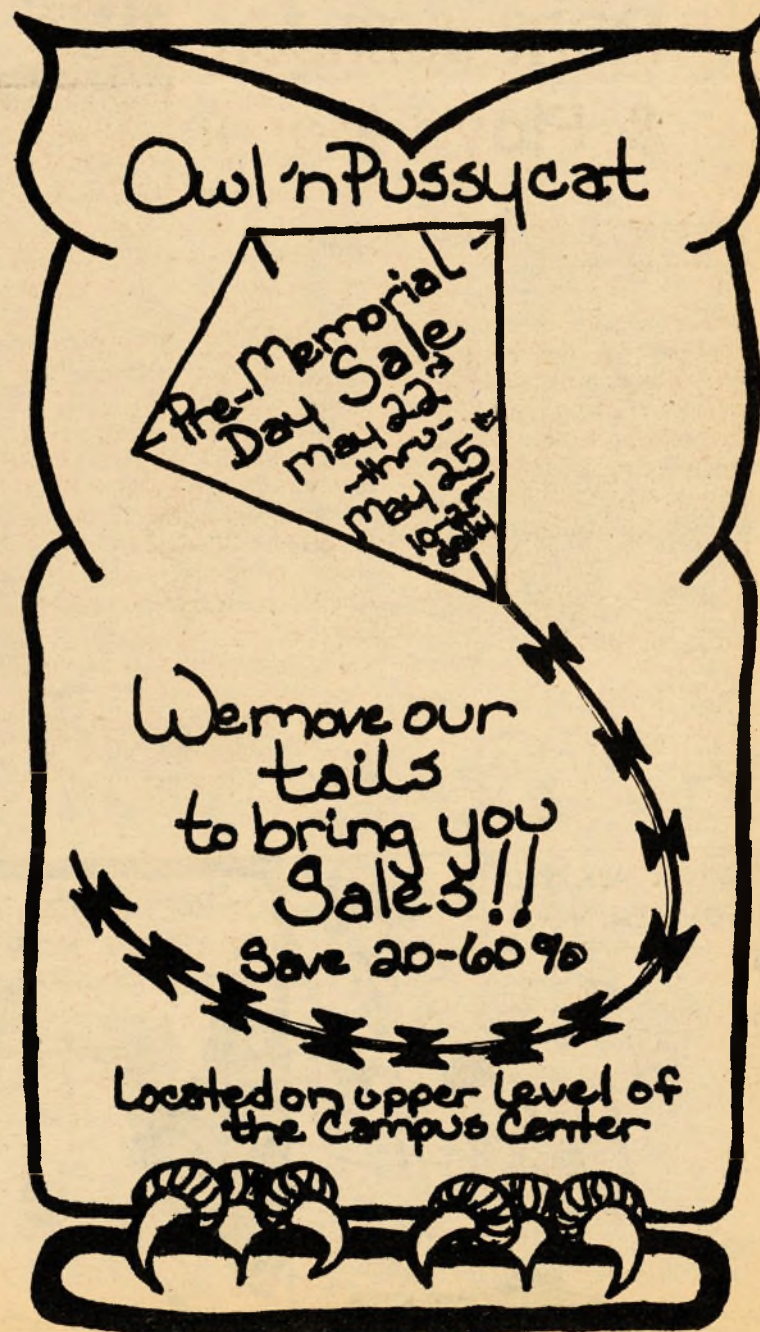 Owl 'n Pussycat
Pre-Memorial
Day Sale
May 22
-thru-
May 25th
daily
We move our
tails
to bring you
Sales!!
Save 20-60%
Located on upper level of
the Campus Center